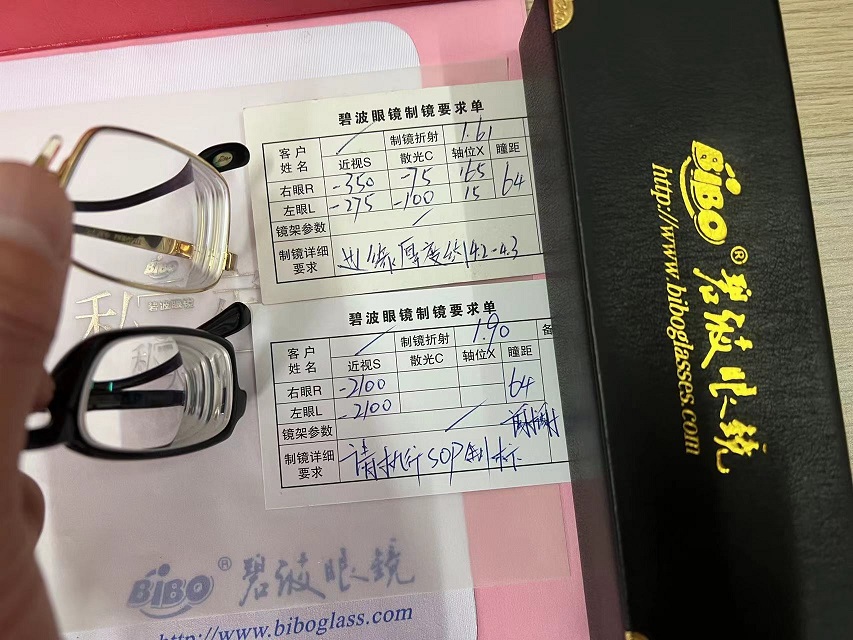 碧波眼镜制镜要求单
客户姓名 制镜折射 1.61
近视S 散光C 轴位X 瞳距
右眼R -350 -75 165 64
左眼L -275 -100 15
镜架参数
制镜详细要求 边缘厚度约4.2-4.3
碧波眼镜制镜要求单
客户姓名 制镜折射 1.90 备
近视S 散光C 轴位X 瞳距
右眼R -2100 64
左眼L -2100
镜架参数
制镜详细要求 请执行SOP制标
BiBO
碧波眼镜
私
BiBO®碧波眼镜
http://www.biboglass.com
BiBO®碧波眼镜
http://www.biboglasses.com